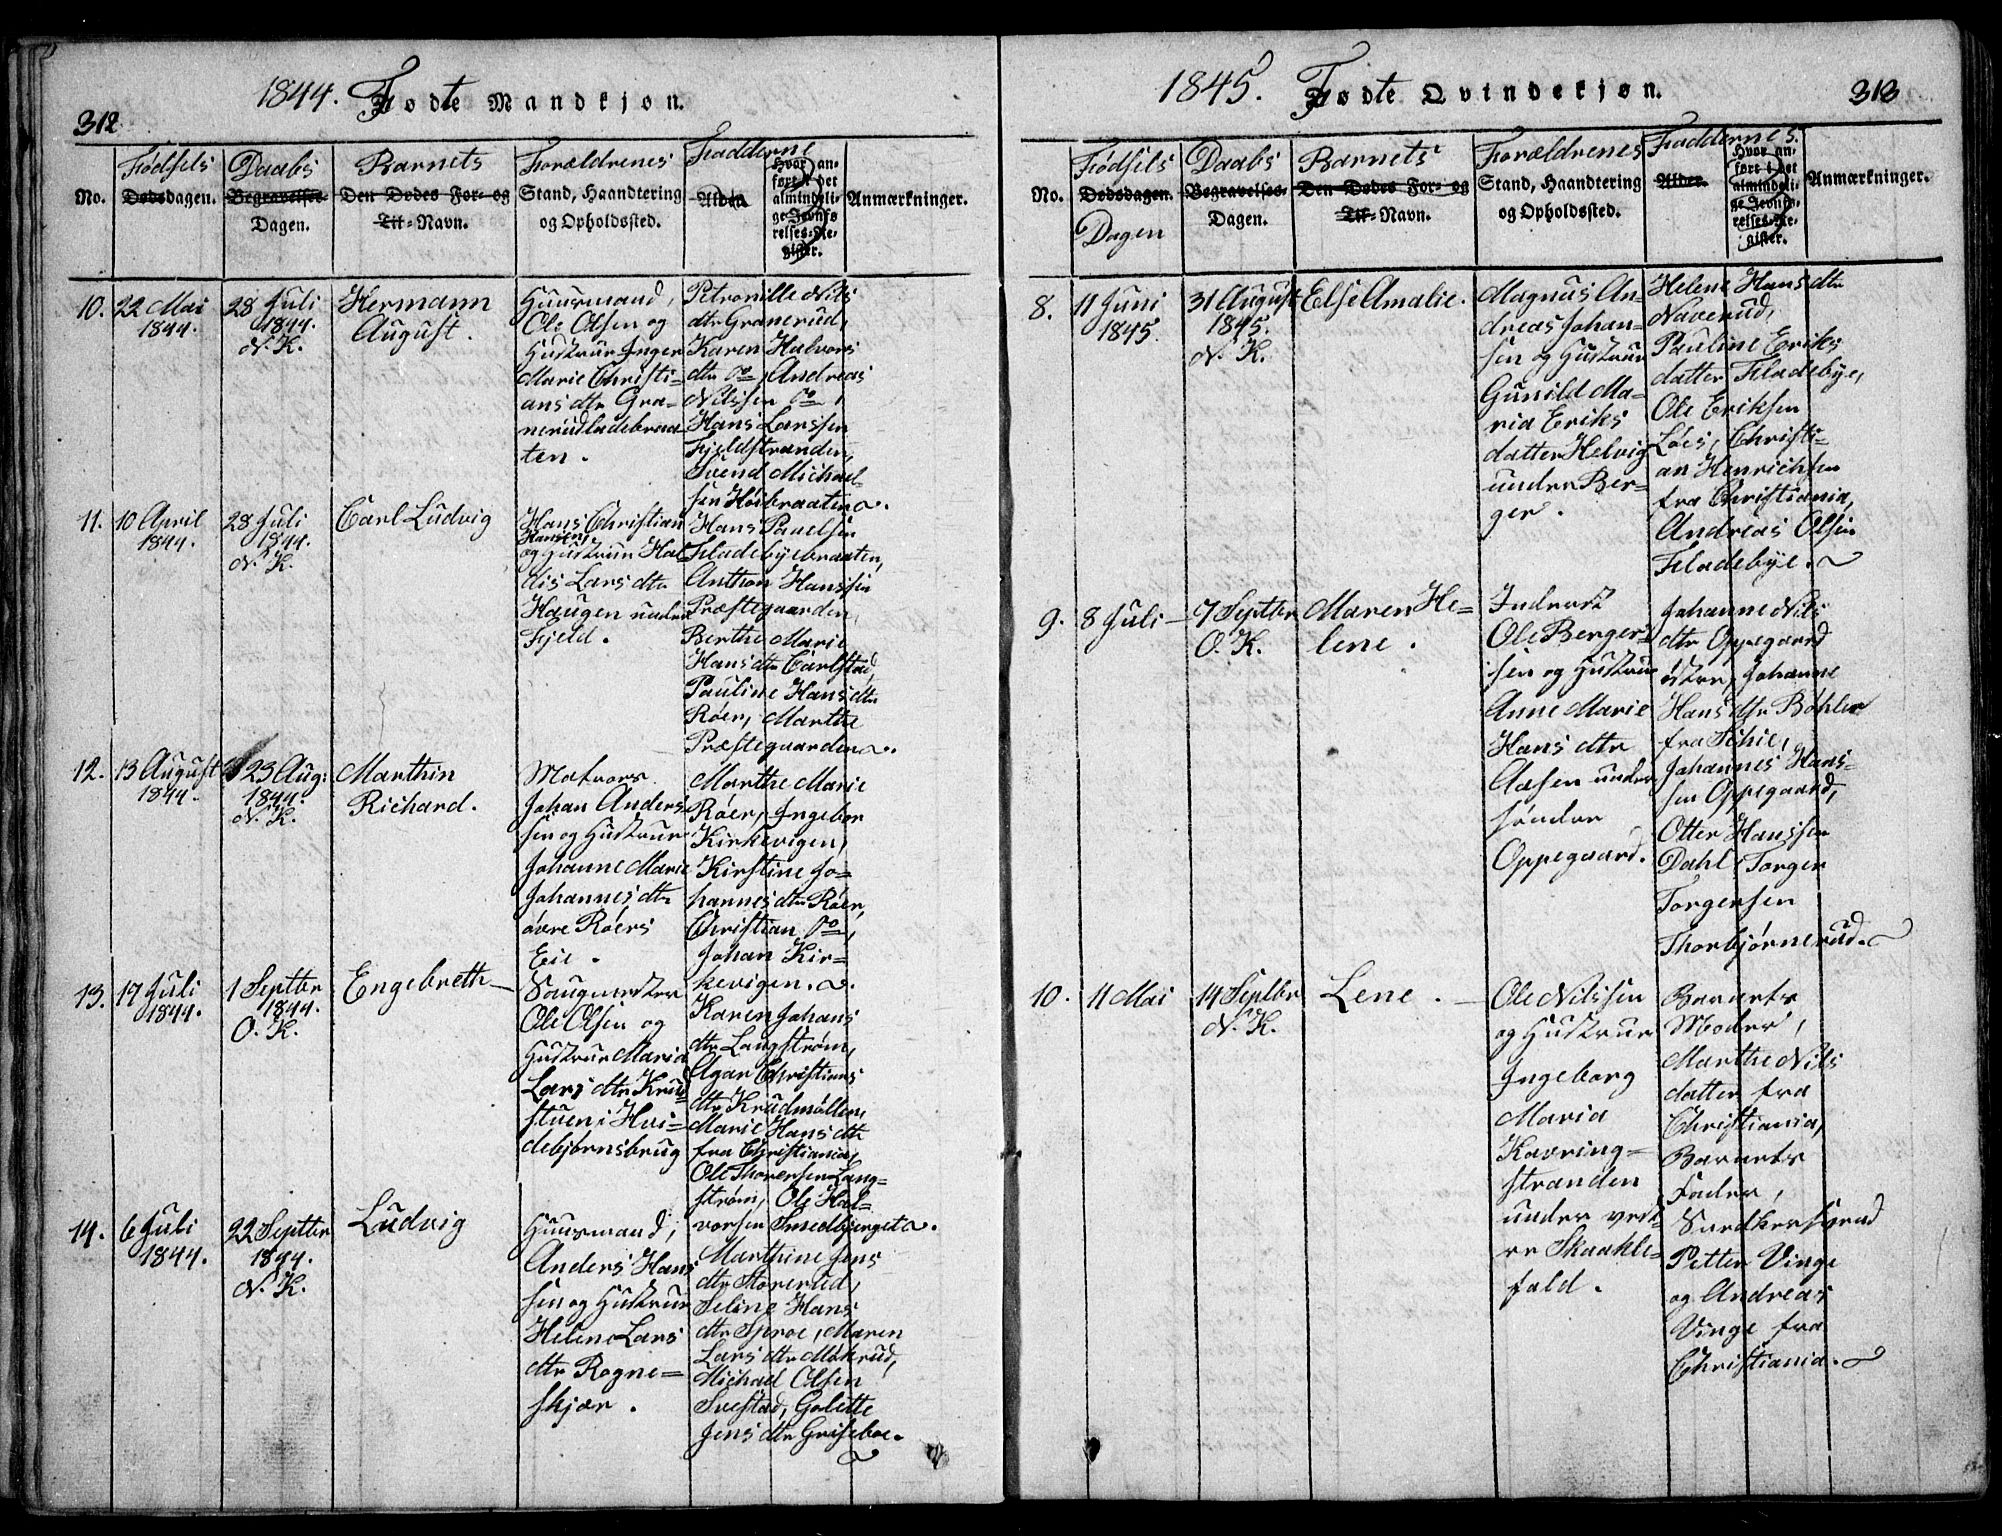 312
1844. Fødte Mandkjøn.
No.
Fødsels
Dødsdagen.
Daabs
Begravelses-
Dagen.
Barnets
Den Dødes For- og
Til-Navn.
Forældrenes
Stand, Haandtering
og Opholdssted.
Fadderne
Alder.
Hvor an-
ført i det
almindeli-
ge Jevnfø-
relses-Re-
gister.
Anmærkninger.
10. 22 Mai
1844.
28 Juli
1844.
N. K.
Hermann
August.
Huusmand,
Ole Olsen og
Hustrue Inger
Marie Christi-
ansdtr Gra-
nerudladebraa-
ten.
Petronille Nils
dtr Granerud,
Karen Halvors
dtr do, Andreas
Nilssen do,
Hans Larssen
Fjeldstranden,
Svend Michael-
sen Høibraaten.
11. 10 April
1844.
28 Juli
1844.
N. K.
Carl Ludvig
Hans Christian
Hansen,
og Hustrue Hal-
dis Lars dtr
Haugen under
Fjeld.
Hans Paulsen
Fladebyebraaten,
Anthon Hanssen
Præstegaarden,
Berthe Marie
Hans dtr Carlstad,
Pauline Hans dtr
Røer, Marthe
Præstegaarden.
12. 13 August
1844.
23 Aug:
1844.
N. K.
Marthin
Richard.
Matros
Johan Anders-
sen og Hustrue
Johanne Marie
Johannes dtr
øvre Røers
Eie.
Marthe Marie
Røer, Ingebor
Kirkevigen,
Kirstine Jo-
hannes dtr Røer,
Christian do,
Johan Kir-
kevigen.
13. 17 Juli
1844.
1 Septbr
1844.
O. K.
Engebreth
Saugmester
Ole Olsen og
Hustrue Maria
Lars dtr Krud-
stuen i Hvi-
debjørnsbrug
Karen Johans
dtr Langstrøm,
Agar Christians
dtr Krudmøllen,
Marie Hans dtr
fra Christiania,
Ole Thoresen Lang-
strøm, Ole Hal-
vorsen Smedbjerget.
14. 6 Juli
1844.
22 Septbr
1844.
N. K.
Ludvig
Huusmand,
Anders Hans
sen og Hustrue
Helene Lars
dtr Rogne-
skjær.
Marthine Jens
dtr Storerud,
Seline Hans
dtr Sproe, Maren
Lars dtr Møkrud,
Michael Olsen
Svestad, Golette
Jens dtr Griseboe.
1845. Fødte Qvindekjøn. 313
No.
Fødsels
Dødsdagen.
Dagen
Daabs
Begravelses-
Dagen.
Barnets
Den Dødes For- og
Til-Navn.
Forældrenes
Stand, Haandtering
og Opholdssted.
Faddernes.
Alder.
Hvor an-
ført i det
almindeli-
ge Jevnfø-
relses-Re-
gister.
Anmærkninger.
8. 11 Juni
1845.
31 August
1845.
N. K.
Else Amalie.
Magnus An-
dreas Johan-
sen og Hustrue
Gunild Ma-
ria Eriks
datter Helvig
under Ber-
ger.
Helene Hans dtr
Naverud,
Pauline Eriks
datter Fladebye,
Ole Eriksen
Løes, Christi-
an Henrichsen
fra Christiania,
Andreas Olsen
Fladebye.
9. 8 Juli
7 Septbr
O. K.
Maren He-
lene.
Inderst
Ole Berger-
sen og Hustrue
Anne Marie
Hans dtr
Aasen under
søndre
Oppegaard.
Johanne Nils
dtr Oppegaard
østre, Johanne
Hans dtr Bøhler
fra Schie,
Johannes Hans-
sen Oppegaard,
Otter Hanssen
Dahl Torger
Torgersen
Thorbjørnerud.
10. 11 Mai
14 Septbr
N. K.
Lene.
Ole Nilssen
og Hustrue
Ingeborg
Maria
Kavring-
stranden
under vest-
re Skaahle-
fald.
Barnets
Moder,
Marthe Nils
datter fra
Christiania,
Barnets
Fader,
Snedkersvend
Petter Vinge
og Andreas
Vinge fra
Christiania.